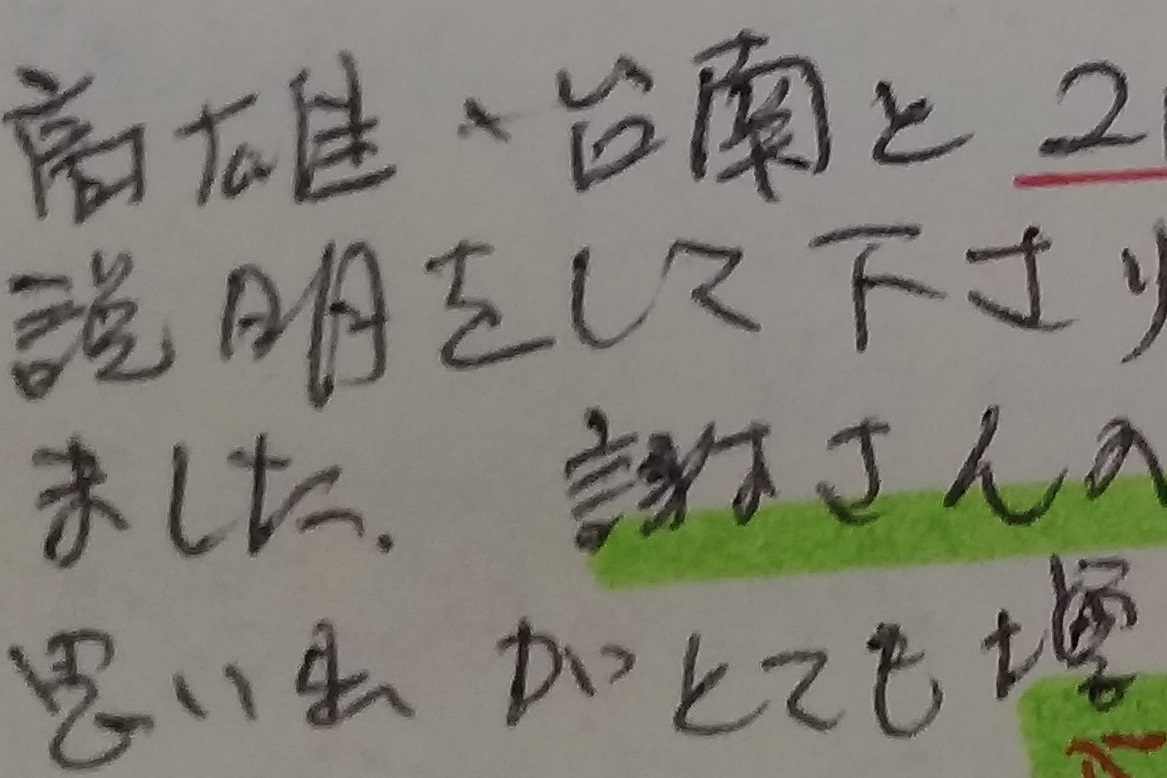 高雄、台南と2
説明をして下さり
ました. 謝さんの
思い出がとても増